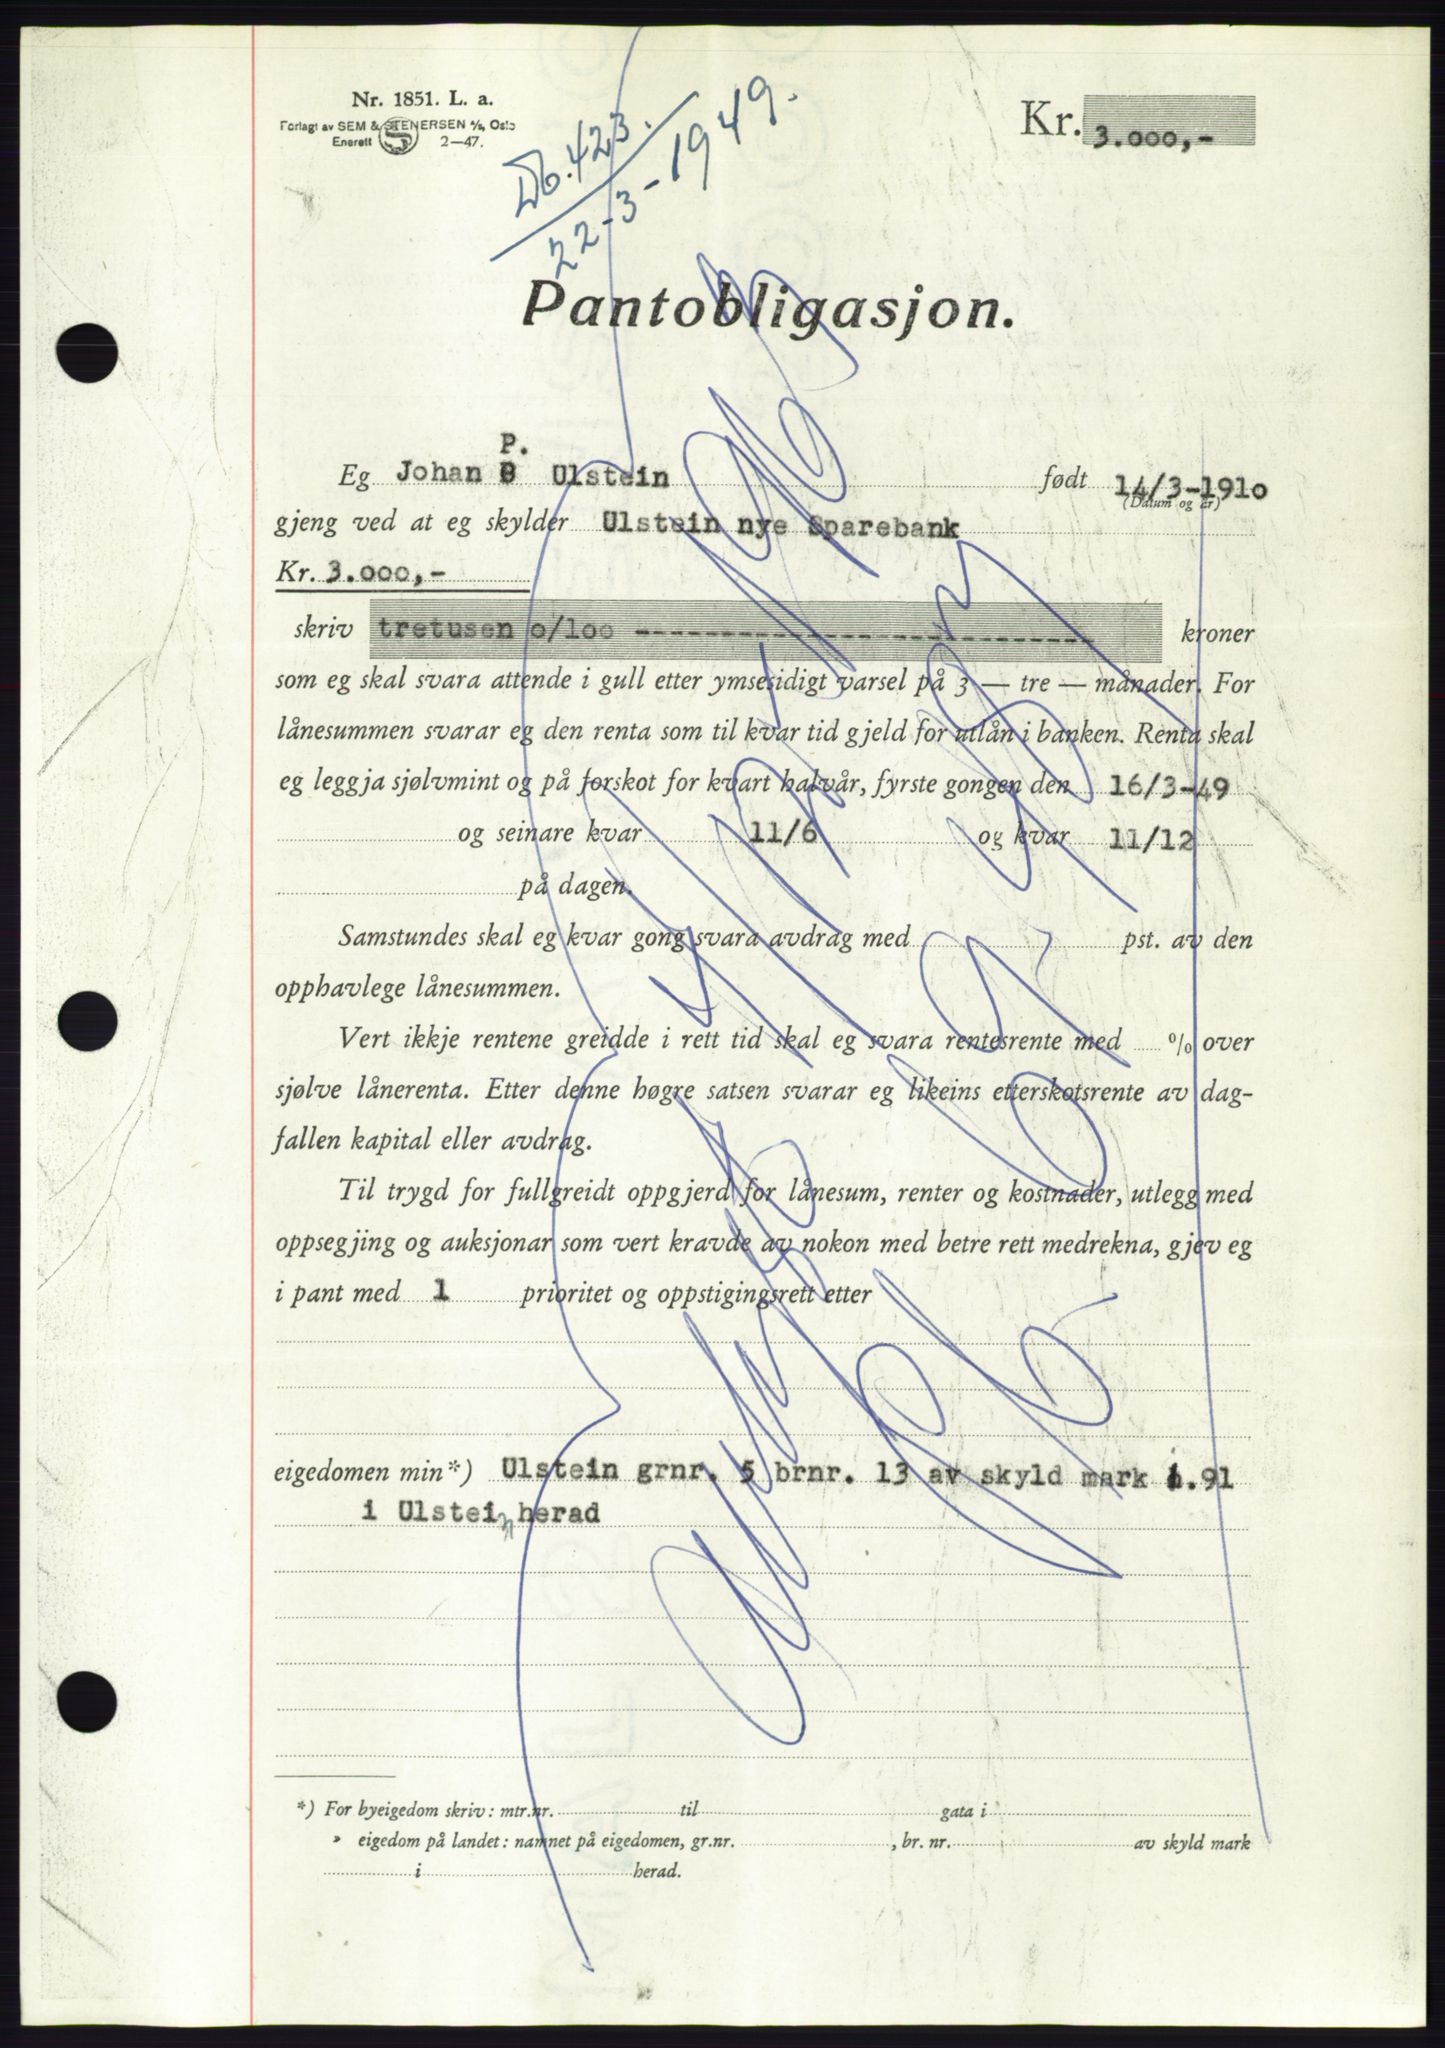 Nr. 1851. L. a.
Forlagt av SEM & STENERSEN A/S, Oslo
Enerett 2—47.
Db. 423.
22-3-1949.
Kr. 3.000,-
Pantobligasjon.
P.
Eg Johan Ulstein født 14/3-1910
(Datum og år)
gjeng ved at eg skylder Ulstein nye Sparebank
Kr. 3.000,-
skriv tretusen o/loo -------------------------- kroner
som eg skal svara attende i gull etter ymsesidigt varsel på 3 — tre — månader. For
lånesummen svarar eg den renta som til kvar tid gjeld for utlån i banken. Renta skal
eg leggja sjølvmint og på forskot for kvart halvår, fyrste gongen den 16/3-49
og seinare kvar 11/6 og kvar 11/12
på dagen.
Samstundes skal eg kvar gong svara avdrag med pst. av den
opphavlege lånesummen.
Vert ikkje rentene greidde i rett tid skal eg svara rentesrente med % over
sjølve lånerenta. Etter denne høgre satsen svarar eg likeins etterskotsrente av dag-
fallen kapital eller avdrag.
Til trygd for fullgreidt oppgjerd for lånesum, renter og kostnader, utlegg med
oppsegjing og auksjonar som vert kravde av nokon med betre rett medrekna, gjev eg
i pant med 1 prioritet og oppstigingsrett etter
eigedomen min*) Ulstein grnr. 5 brnr. 13 av skyld mark .91
i Ulstein herad
*) For byeigedom skriv: mtr.nr. til gata i
» eigedom på landet: namnet på eigedomen, gr.nr. , br. nr. av skyld mark
i herad.